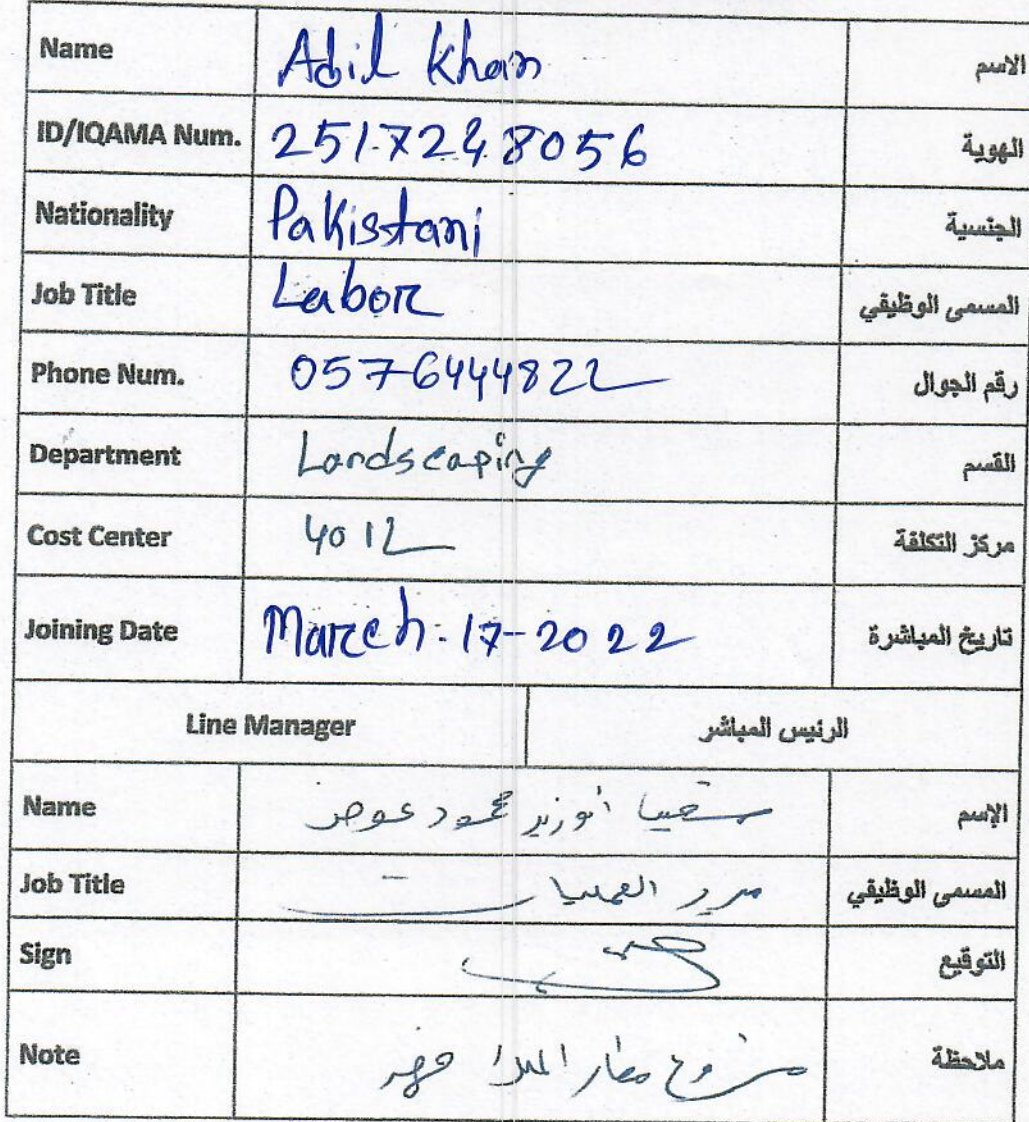 Name Adil Khan الاسم
ID/IQAMA Num. 2517248056 الهوية
Nationality Pakistani الجنسية
Job Title Labor المسمى الوظيفي
Phone Num. 0576444822 رقم الجوال
Department Landscaping القسم
Cost Center 4012 مركز التكلفة
Joining Date March-17-2022 تاريخ المباشرة
Line Manager الرئيس المباشر
Name محمود عوض الإسم
Job Title مدير العمليات المسمى الوظيفي
Sign التوقيع
Note مشروع مطار الملك فهد ملاحظة